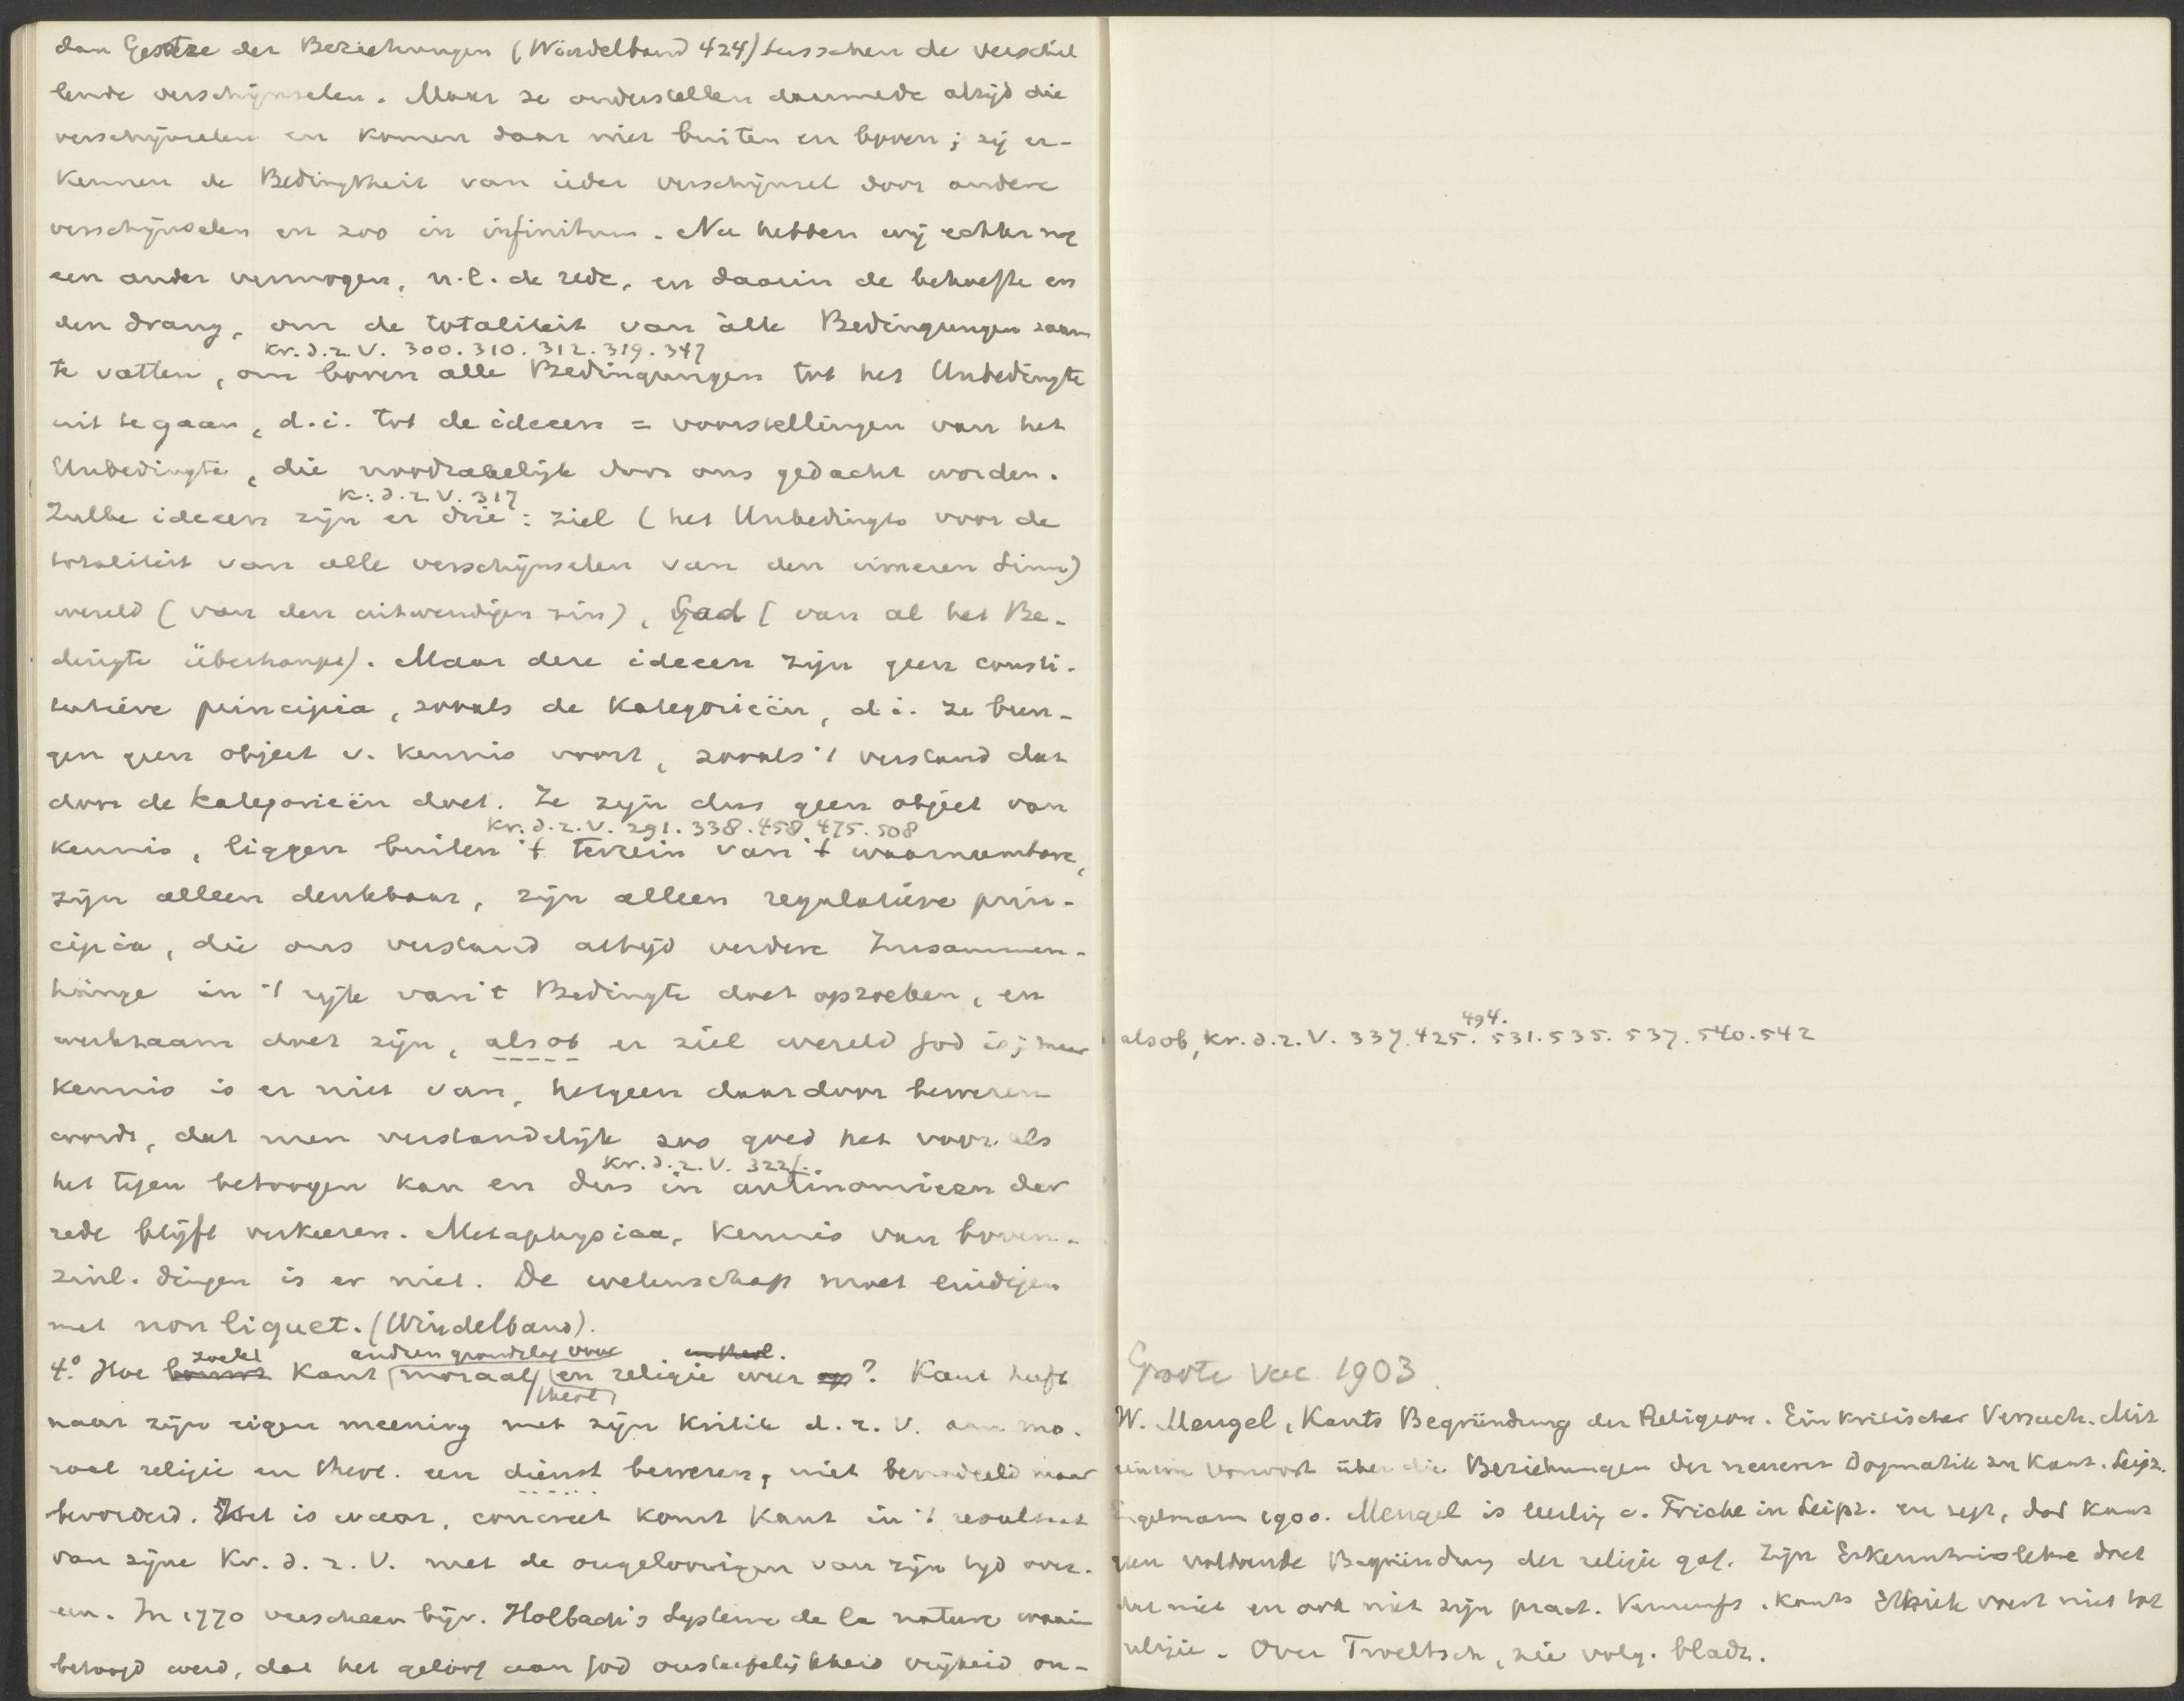 dan Gesetze der Beziehungen (Windelband 424) tusschen de verschil
lende verschijnselen. Maar ze onderstellen daarmede altijd die
verschijnselen en komen daar niet buiten en boven; zij er-
kennen de Bedingtheit van ieder verschijnsel door andere
verschijnselen en zoo in infinitum. Nu hebben wij echter nog
een ander vermogen, n.l. de rede, en daarin de behoefte en
den drang, om de totaliteit van alle Bedingungen saam
Kr. d. r. V. 300. 310. 312. 319. 347
te vatten, om boven alle Bedingungen tot het Unbedingte
uit te gaan, d.i. tot de ideeen = voorstellingen van het
Unbedingte, die noodzakelijk door ons gedacht worden.
K. d. r. V. 317
Zulke ideeen zijn er drie: ziel (het Unbedingte voor de
totaliteit van alle verschijnselen van den inneren Sinn)
wereld (van den uitwendigen zin), God (van al het Be-
dingte überhaupt). Maar deze ideeen zijn geen consti-
tutieve principia, zooals de Kategorieën, d.i. ze bren-
gen geen object v. kennis voort, zooals 't verstand dat
door de Kategorieën doet. Ze zijn dus geen object van
Kr. d. r. V. 291. 338. 458. 475. 508
kennis, liggen buiten 't terrein van 't waarneembare,
zijn alleen denkbaar, zijn alleen regulatieve prin-
cipia, die ons verstand altijd verdere Zusammen-
hänge in 't rijk van 't Bedingte doet opzoeken, en
werkzaam doet zijn, alsof er ziel wereld God is; maar
kennis is er niet van, hetgeen daardoor bewezen
wordt, dat men verstandelijk zoo goed het voor als
Kr. d. r. V. 322f.
het tegen betoogen kan en dus in antinomieen der
rede blijft verkeeren. Metaphysica, kennis van boven-
zinl. dingen is er niet. De wetenschap moet eindigen
met non liquet. (Windelband).
zoekt andren grondslag voor en theol.
4.° Hoe bouwt Kant moraal en religie weer op? Kant heeft
theol
naar zijn eigen meening met zijn Kritik d. r. V. aan mo-
raal religie en theol. een dienst bewezen, niet benadeeld maar
bevorderd. Het is waar, concreet komt Kant in 't resultaat
van zijne Kr. d. r. V. met de ongeloovigen van zijn tijd over-
een. In 1770 verscheen bijv. Holbach's Systeme de la nature waarin
betoogd werd, dat het geloof aan God onsterfelijkheid vrijheid on-
494.
alsob, Kr. d. r. V. 337. 425. 531. 535. 537. 540. 542
Groote Vac. 1903.
W. Mengel, Kants Begründung der Religion. Ein kritischer Versuch. Mit
einem Vorwort über die Beziehungen der neueren Dogmatik zu Kant. Leipz.
Engelmann 1900. Mengel is leerling v. Fricke in Leipz. en zegt, dat Kant
geen voldoende Begründung der religie gaf. Zijn Erkenntnislehre doet
dat niet en ook niet zijn pract. Vernunft. Kants Ethik voert niet tot
religie. Over Troeltsch, zie volg. bladz.